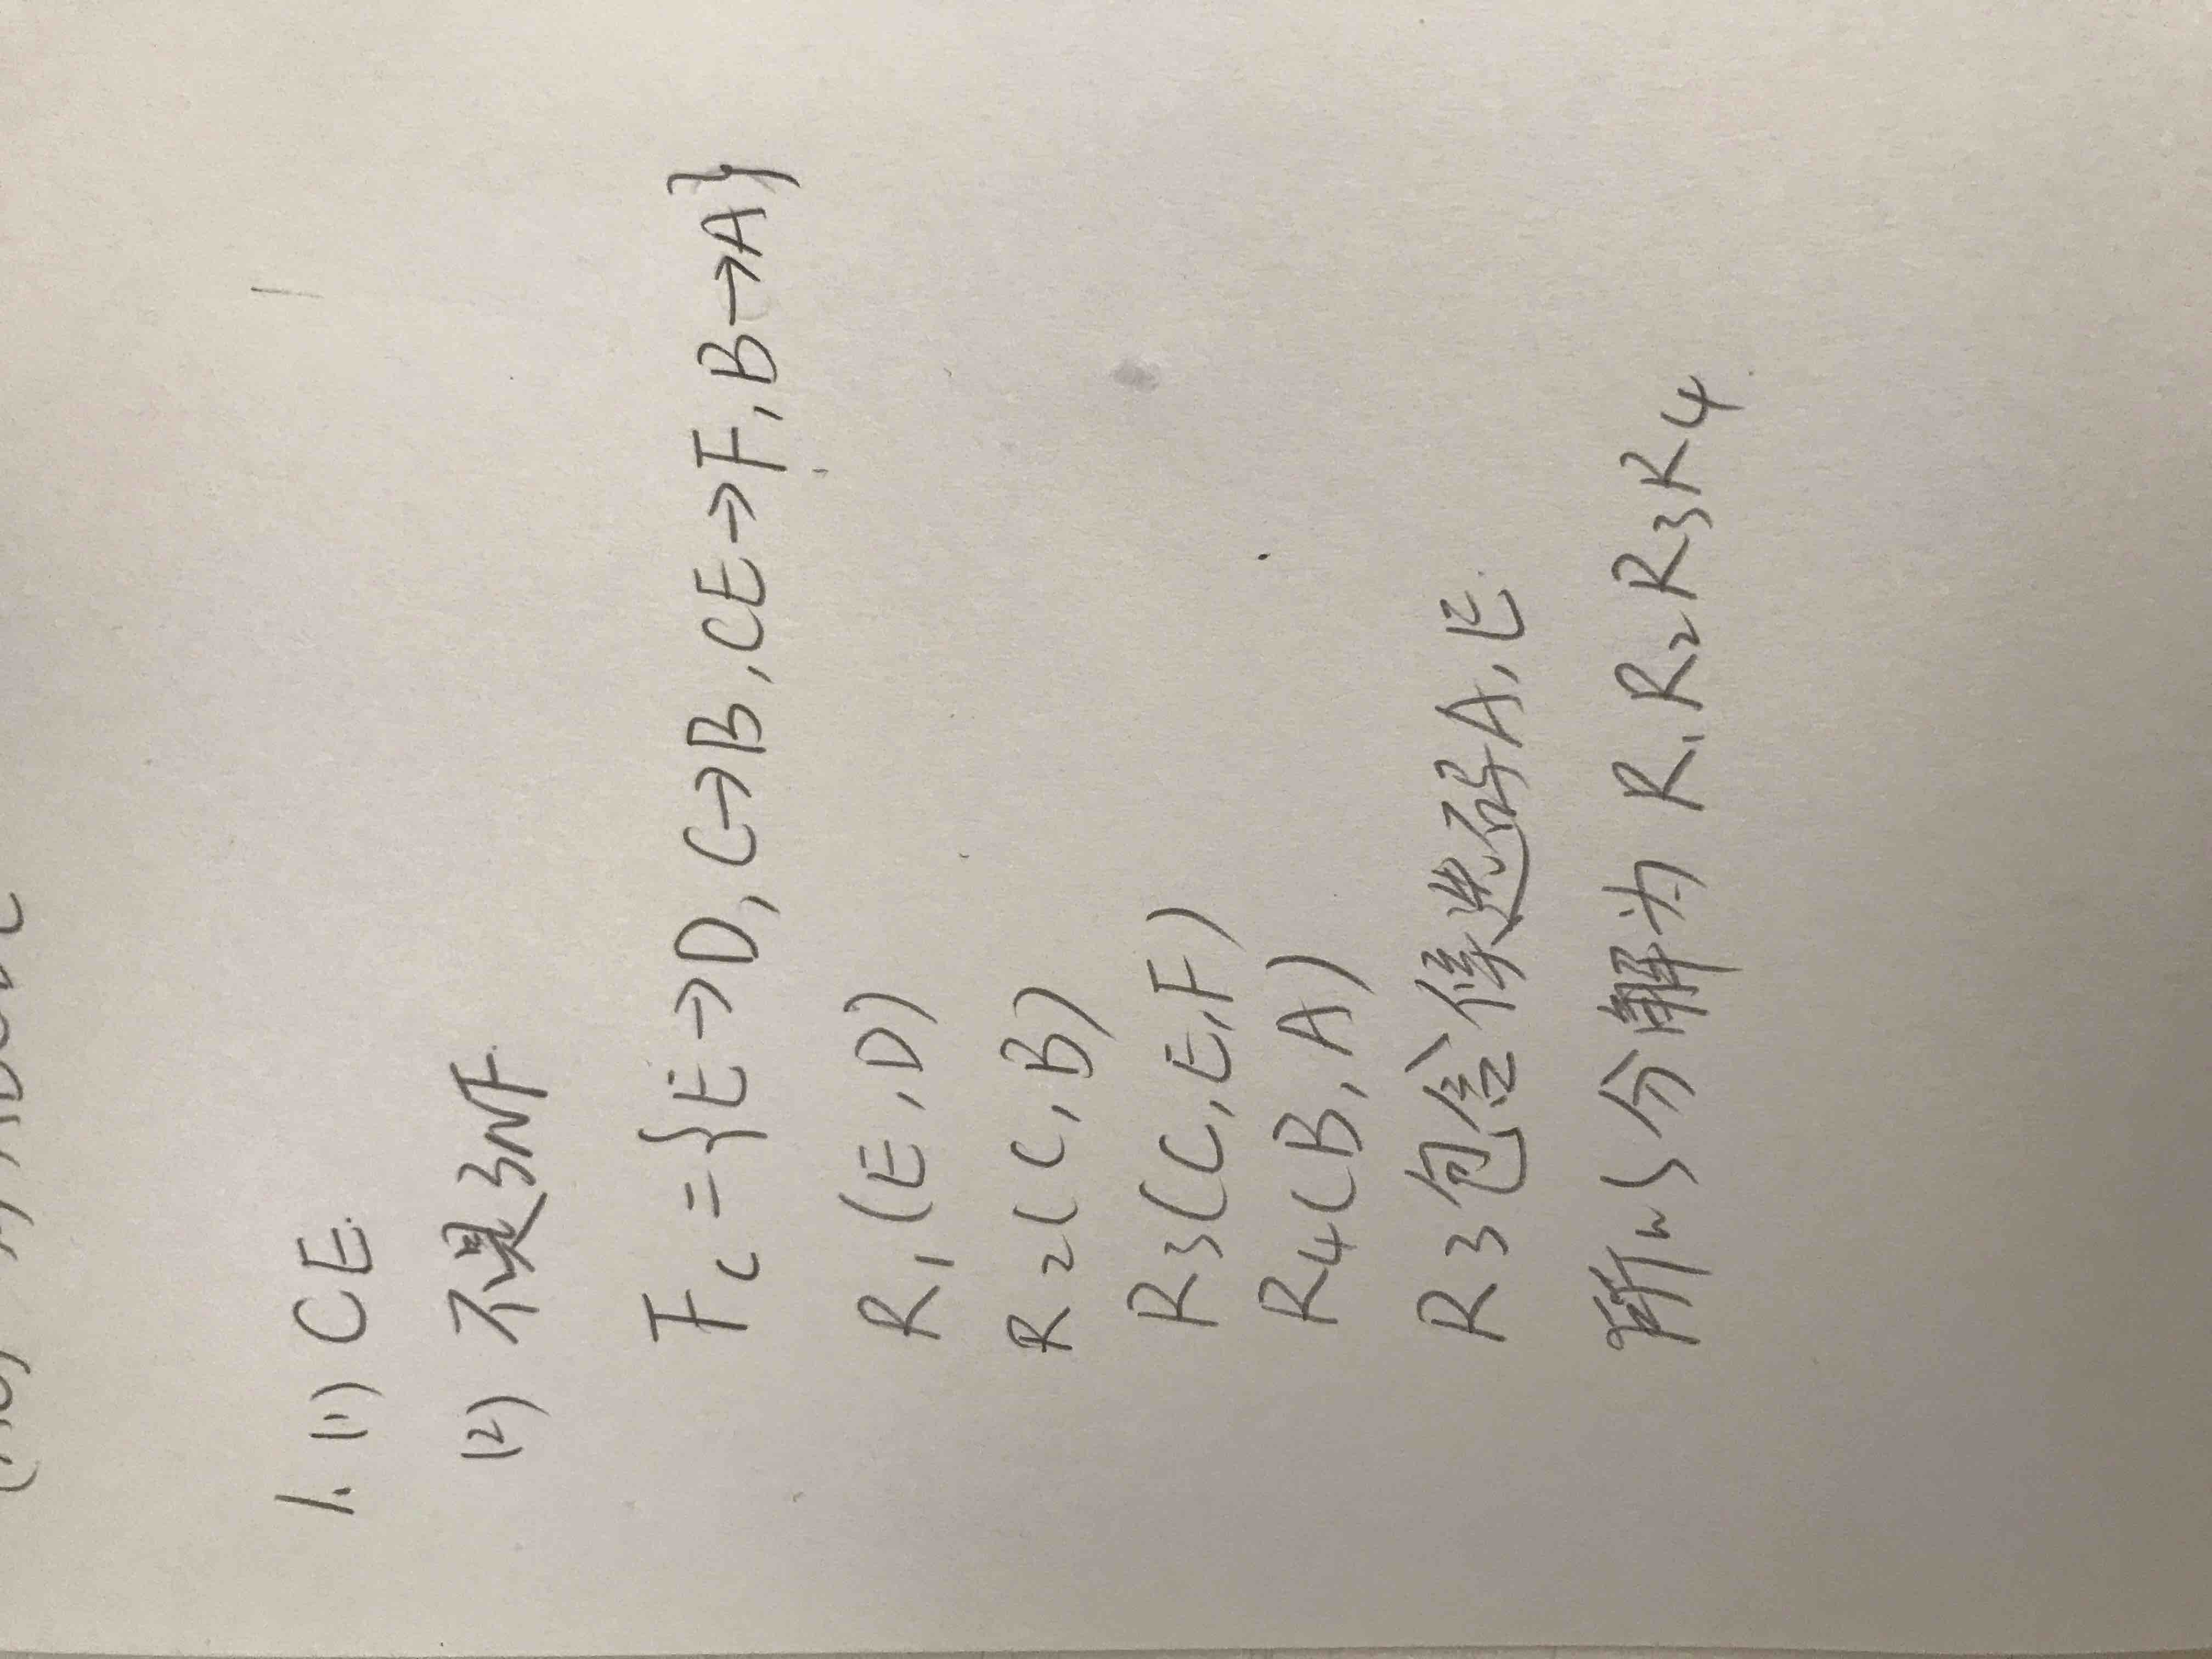 1. (1) CE.
(2) 不是3NF.
Fc={E→D,C→B,CE→F,B→A}
R1(E,D)
R2(C,B)
R3(C,E,F)
R4(B,A)
R3包含候选码A,E.
所以分解为 R1R2R3R4